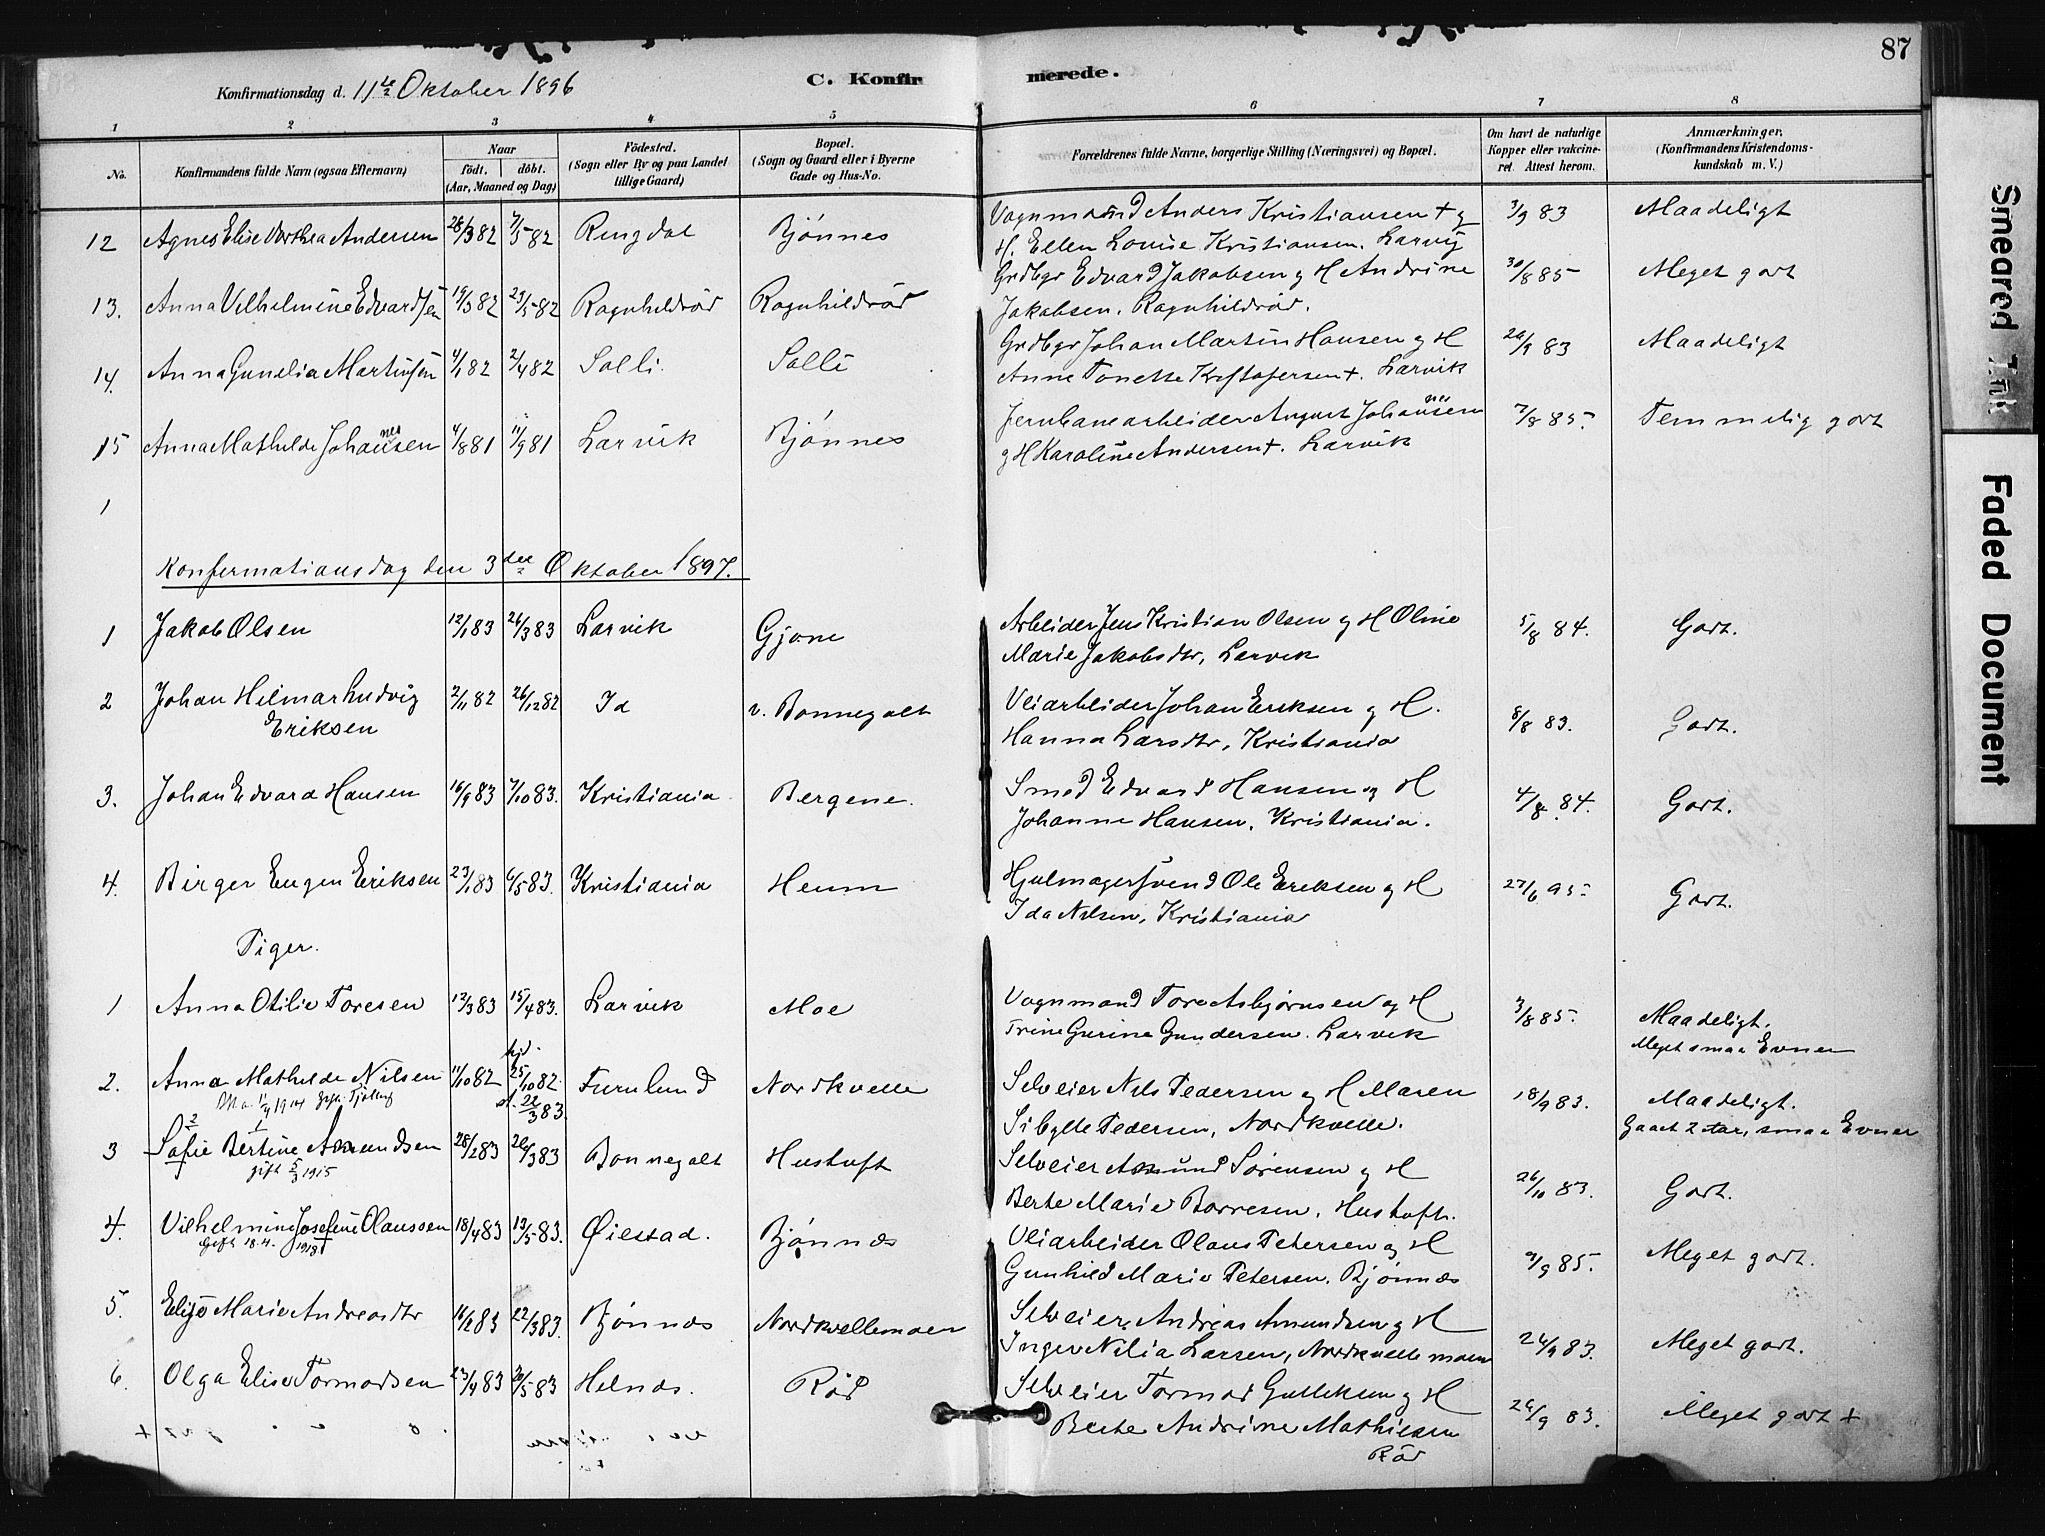 87
Konfirmationsdag d. 11te Oktober 1896
C. Konfirmerede.
1 2 3 4 5 6 7 8
No. Konfirmandens fulde Navn (ogsaa Efternavn) Naar födt. döbt. (Aar, Maaned og Dag) Födested. (Sogn eller By og paa Landet tillige Gaard) Bopæl. (Sogn og Gaard eller i Byerne Gade og Hus-No. Forældrenes fulde Navne, borgerlige Stilling (Næringsvei) og Bopæl. Om havt de naturlige Kopper eller vakcineret. Attest herom. Anmærkninger. (Konfirmandens Kristendomskundskab m. V.)
12 Agnes Elise Dorthea Andersen 28/3 82 7/5 82 Ringdal Bjønnes Vognmand Anders Kristiansen + g 3/9 83 Maadeligt
H. Ellen Louise Kristiansen. Larvig
13. Anna Vilhelmine Edvardsen 19/3 82 29/5 82 Ragnhildrød Ragnhildrød Grdbgr Edvard Jakobsen g H Andrine 30/8 85 Meget godt
Jakobsen. Ragnhildrød.
14. Anna Gunelia Martinsen 4/1 82 2/4 82 Solli Solli Grdbgr Johan Martin Hansen g H 29/9 83 Maadeligt
Anne Tonette Kristofersen +. Larvik
15 Anna Mathilde Johannesen 4/8 81 11/9 81 Larvik Bjønnes Jernbanearbeider August Johannesen 7/8 85. Temmelig godt
g H Karoline Andersen +. Larvik
1
Konfirmationsdag den 3die Oktober 1897.
1 Jakob Olsen 12/1 83 26/3 83 Larvik Gjone Arbeider Jens Kristian Olsen g H Oline 5/8 84. Godt.
Marie Jakobsdtr, Larvik
2 Johan Hilmar Ludvig Eriksen 2/11 82 26/12 82 Id v. Bonnegolt Veiarbeider Johan Eriksen g H. 8/8 83. Godt.
Hanna Larsdtr, Kristiania
3. Johan Edvard Hansen 16/9 83 7/10 83. Kristiania Bergene. Smed Edvard Hansen og H 4/8. 84. Godt.
Johanne Hansen, Kristiania.
4. Birger Eugen Eriksen 23/1 83 6/5 83. Kristiania Heum Hjulmagersvend Ole Eriksen g H 27/6 95. Godt.
Ida Nilsen, Kristiania
Piger.
1 Anna Otilie Toresen 12/3 83 15/4 83. Larvik Moe Vognmand Tore Asbjørnsen og H 3/8 85. Maadeligt.
Trine Gurine Gundersen. Larvik Meget smaa Evner
2. Anna Mathilde Nilsen 11/10 82 hjd. 25/10 82 st. 22/3 83. Furulund Nordkvelle Selveier Nils Pedersen g H Maren 18/9 83. Maadeligt.
Sibylle Pedersen, Nordkvelle. Gaaet 2 Aar, smaa Evner
3 Sofie Bertine Amundsen 28/2 83 20/3 83 Bonnegolt Hustoft Selveier Amund Sørensen g H 26/10 83. Godt.
gift 5/3 1915
Berte Marie Borresen, Hustoft.
4. Vilhelmine Josefine Olaussen 18/4 83 13/5 83. Øilestad. Bjønnes Veiarbeider Olaus Petersen og H 9/9 85. Meget godt.
Gift 18.4. 1918
Gunhild Marie Petersen. Bjønnes
5. Elise Marie Andreasdtr 16/2 83 22/3 83. Bjønnes Nordkvellemoen Selveier Andreas Amundsen g H 24/9 83. Meget godt.
Inger Nilia Larsen, Nordkvellemoen
6. Olga Elise Tormodsen 23/4 83 20/5 83 Helnes. Rød Selveier Tormod Gulliksen g H 24/9 83. Meget godt +
Berte Andrine Mathisen
Rød
Smeared Ink
Faded Document